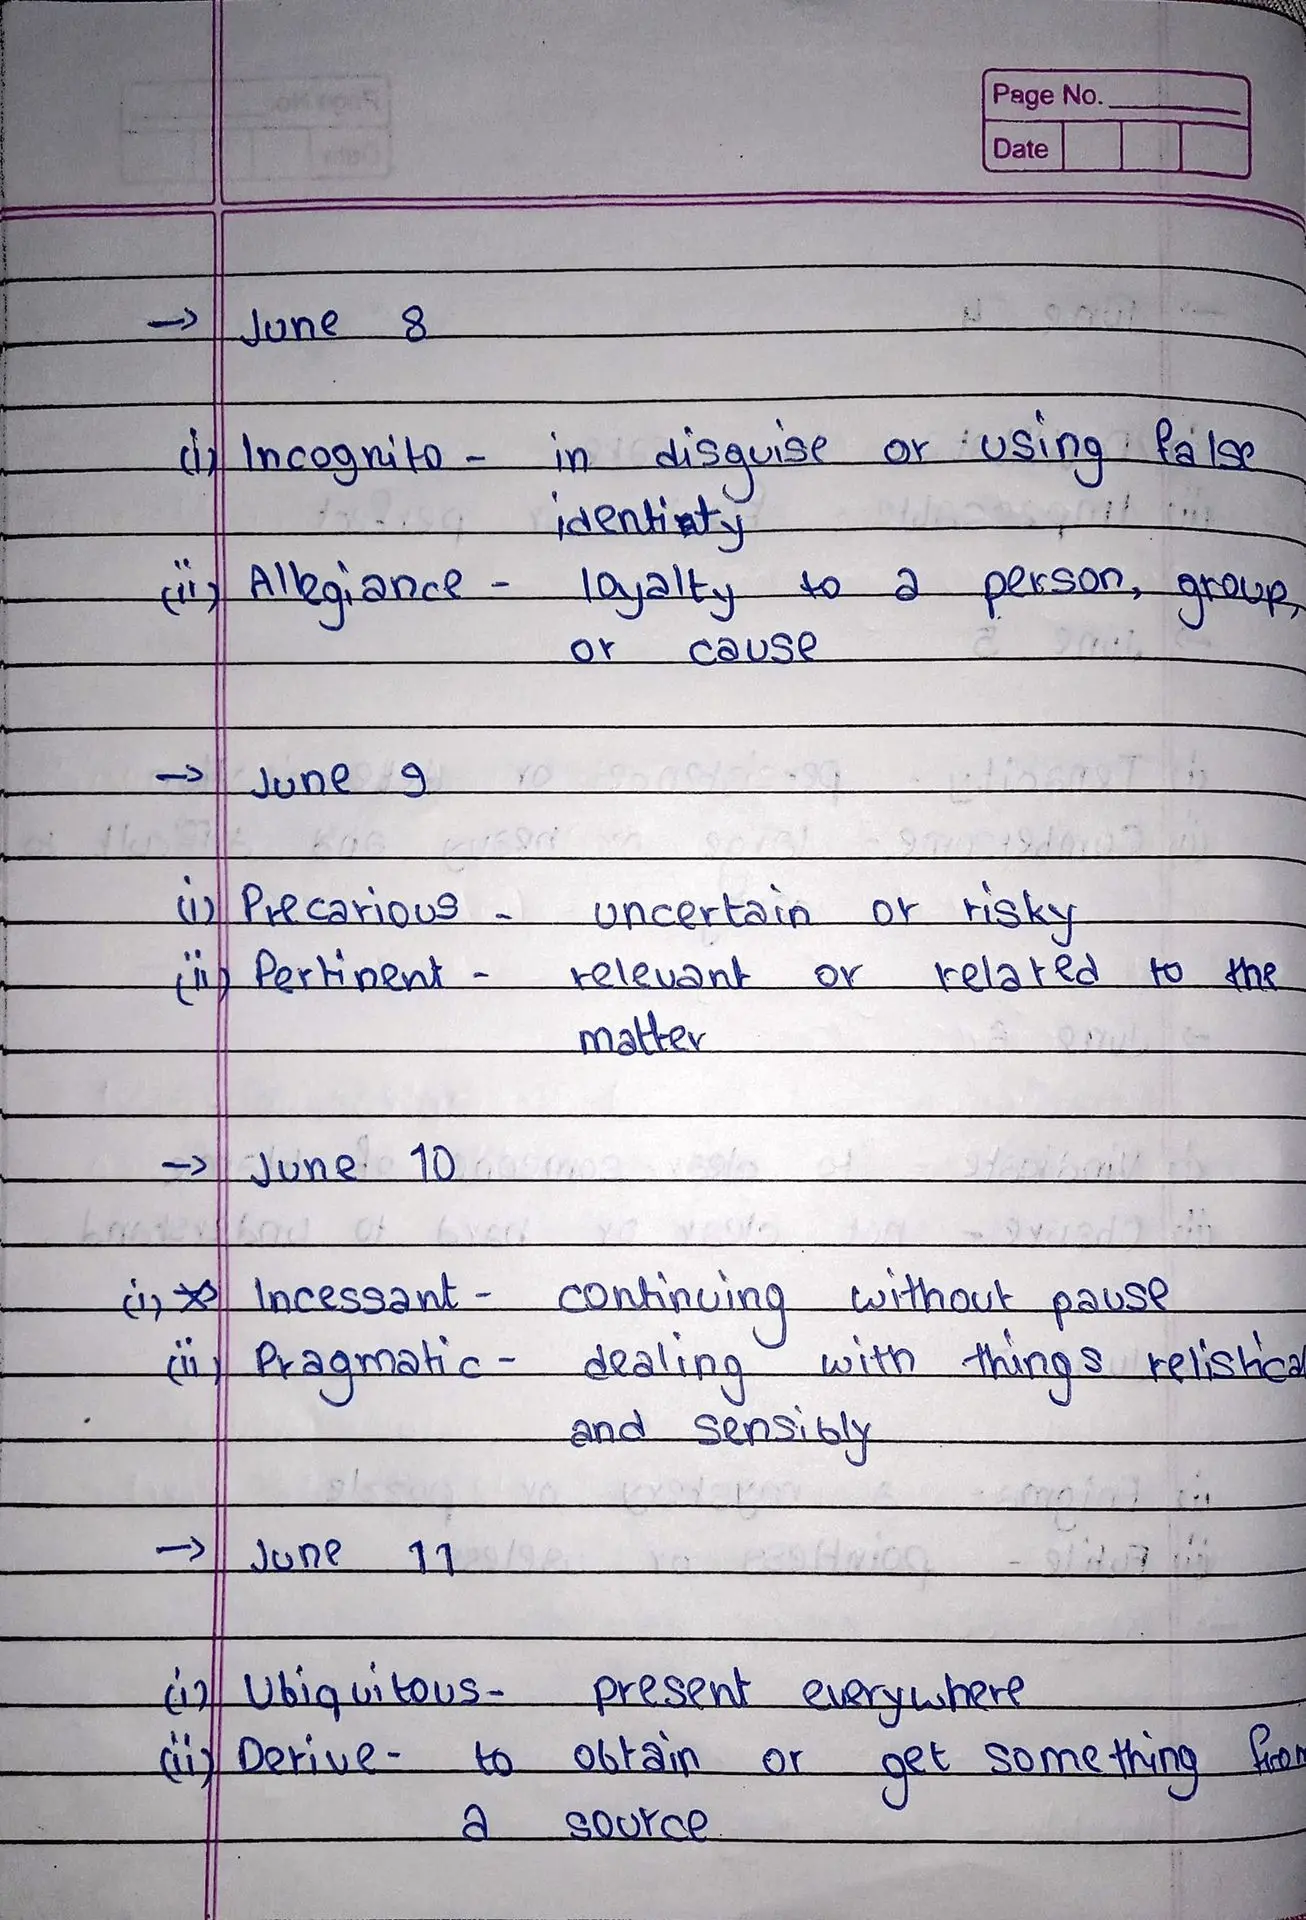 Page No.
Date
→ June 8
(i) Incognito - in disguise or using false
identity
(ii) Allegiance - loyalty to a person, group,
or cause
→ June 9
(i) Precarious - uncertain or risky
(ii) Pertinent - relevant or related to the
matter
→ June 10
(i) Incessant - continuing without pause
(ii) Pragmatic - dealing with things relistical
and sensibly
→ June 11
(i) Ubiquitous - present everywhere
(ii) Derive - to obtain or get something from
a source